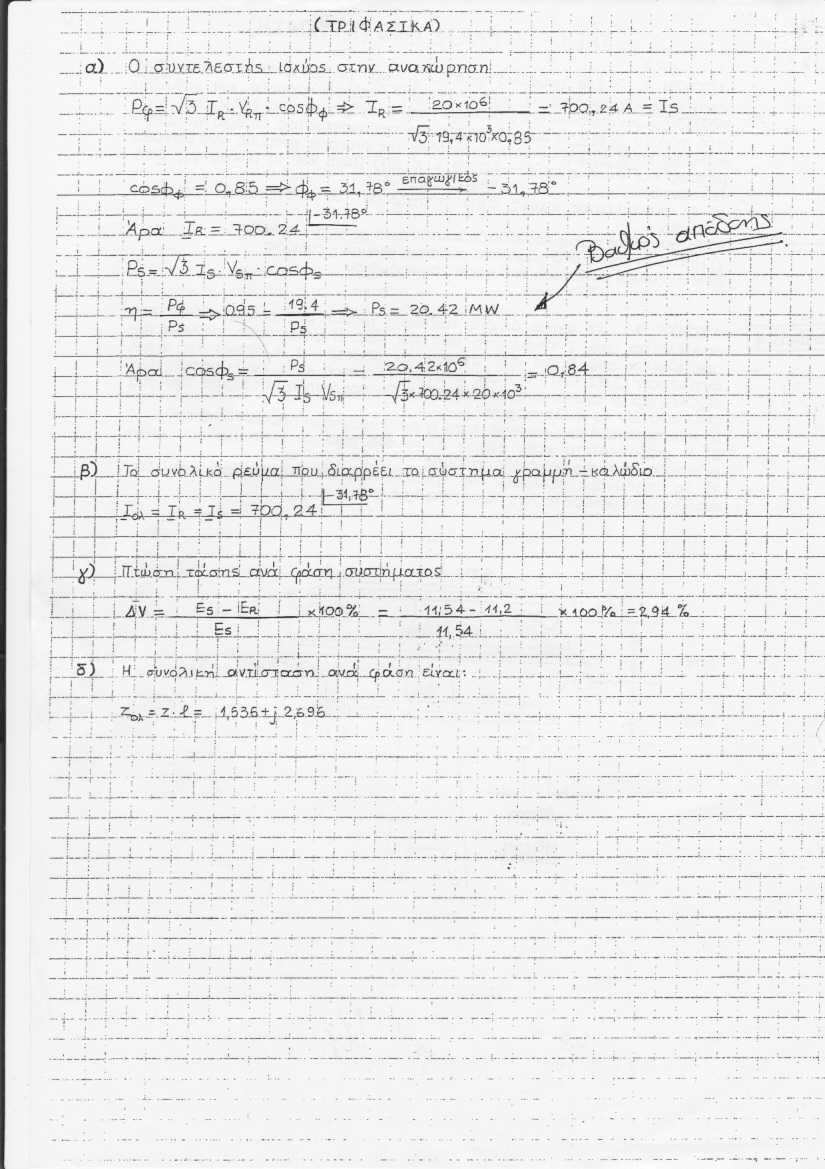 (ΤΡΙΦΑΣΙΚΑ)
α) Ο συντελεστής ισχύος στην αναχώρηση
Pφ = √3 I_R · V_Rπ · cosφ_φ ⇒ I_R = 20×10⁶ / √3 · 19,4×10³×0,85 = 700,24 A = I_S
cosφ_φ = 0,85 ⇒ φ_φ = 31,78° επαγωγικός → -31,78°
Άρα I_R = 700.24 |-31.78°
P_S = √3 I_S · V_Sπ · cosφ_S
Βαθμός απόδοσης
η = Pφ / P_S ⇒ 0.95 = 19.4 / P_S ⇒ P_S = 20.42 MW
Άρα cosφ_S = P_S / √3 I_S · V_Sπ = 20.42×10⁶ / √3×700.24×20×10³ = 0,84
β) Το συνολικό ρεύμα που διαρρέει το σύστημα γραμμή-καλώδιο
I_ολ = I_R = I_S = 700,24 |-31,78°
γ) Πτώση τάσης ανά φάση συστήματος
ΔV = E_S - E_R / E_S ×100% = 11,54 - 11,2 / 11,54 ×100% = 2,94 %
δ) Η συνολική αντίσταση ανά φάση είναι:
Z_ολ = z · ℓ = 1,536 + j 2,696